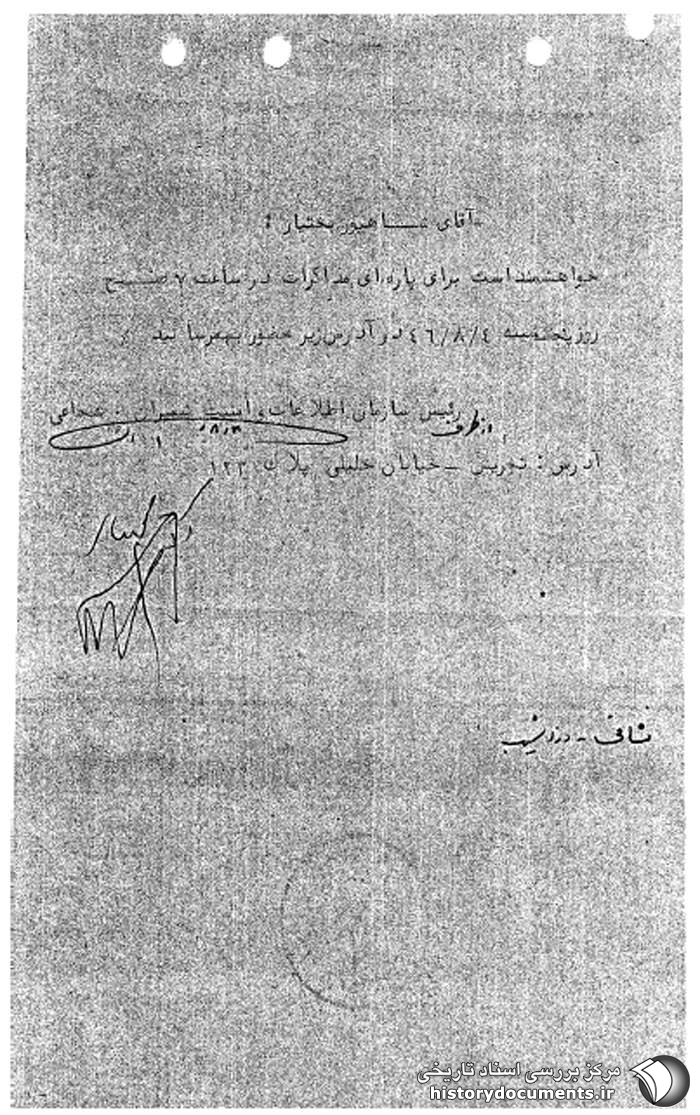 -آقای شـــاهپور بختیار :
خواهشمند است برای پاره ای مذاکرات در ساعت ۷ صبـــح
روز پنجشنبه ۴۶/۸/۴ در آدرس زیر حضور بهمرسانید ٪
رئیس سازمان اطلاعات و امنیت شمیران . شجاعی
از طرف
۸/۳
آدرس : تجریش – خیابان خلیلی پلاک ۱۲۳
بختیار
نشانی - دزاشیب
مرکز بررسی اسناد تاریخی
historydocuments.ir